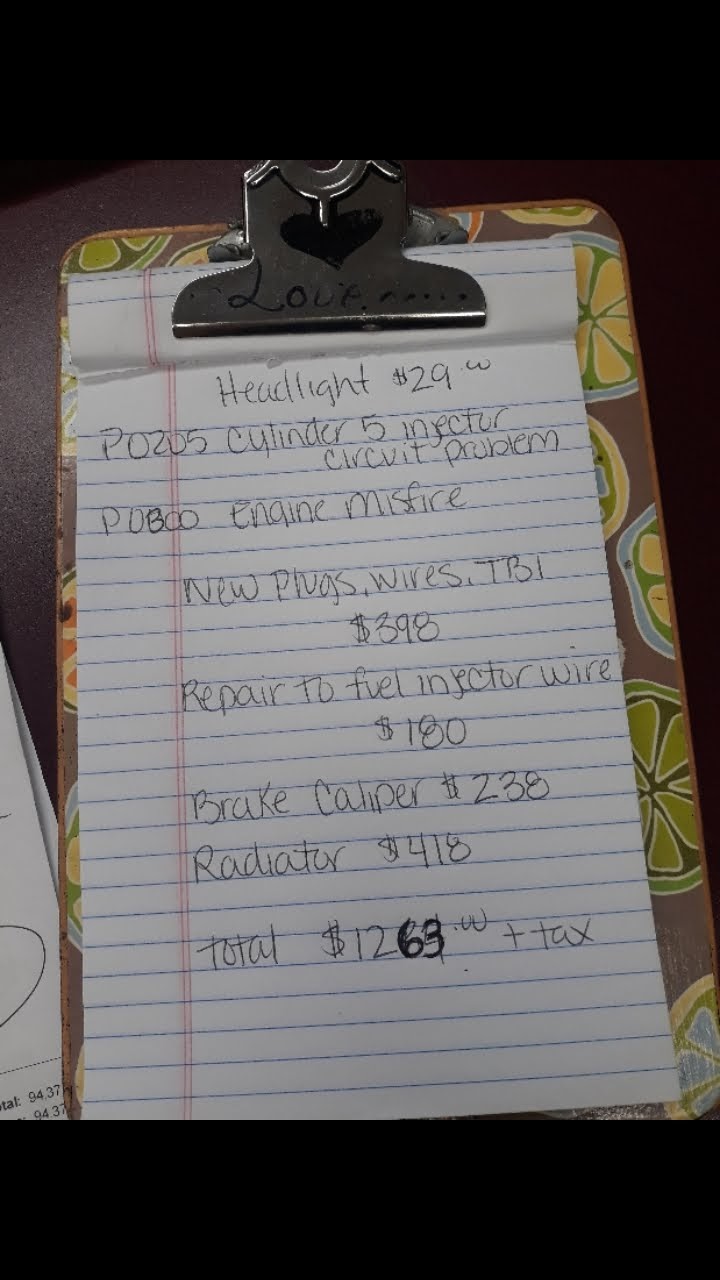 Love.......
Headlight $29.00
P0205 Cylinder 5 injector
circuit problem
P0300 Engine Misfire
New Plugs, wires, TBI
$398
Repair to fuel injector wire
$180
Brake Caliper $238
Radiator $418
Total $1263.00 + tax
otal: 94.37
94.37